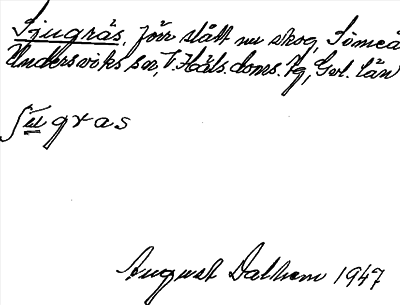 Sjugrås, förr slått nu skog, Sömeå
Undersviks sn, V. Häls. doms. hg, Gvl. län
ʃu̲gras
August Dalhem 1947